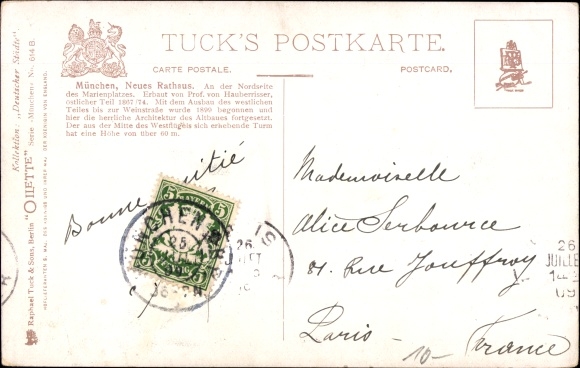 TUCK'S POSTKARTE.
CARTE POSTALE.
POSTCARD.
München, Neues Rathaus. An der Nordseite
des Marienplatzes. Erbaut von Prof. von Hauberrisser,
östlicher Teil 1867/74. Mit dem Ausbau des westlichen
Teiles bis zur Weinstraße wurde 1899 begonnen und
hier die herrliche Architektur des Altbaues fortgesetzt.
Der aus der Mitte des Westflügels sich erhebende Turm
hat eine Höhe von über 60 m.
Kollektion: „Deutscher Städte"
"OILETTE" Serie „München" No. 614 B.
Raphael Tuck & Sons, Berlin
Bonne
5 BAYERN 5
MÜNCHEN
26
JUILLE
14
09
Mademoiselle
Alice Serbource
81. Rue Jouffroy
Paris
France
10-